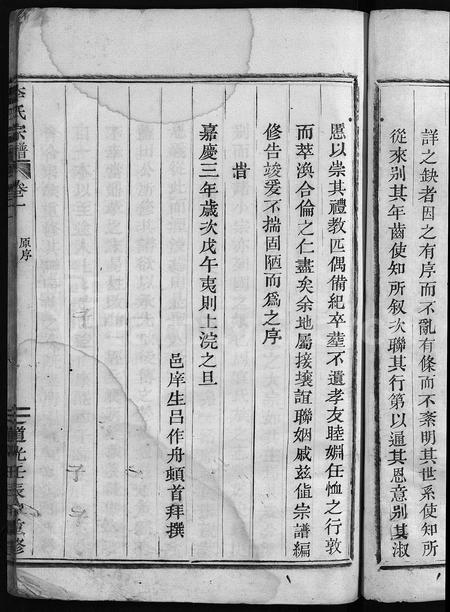 詳之缺者因之有序而不亂有條而不紊明其世系使知所
從來别其年齒使知所叙次聯其行第以逼其恩意别其淑
慝以崇其禮教匹偶備紀卒塟不遺孝友睦婣任恤之行敦
而萃渙合倫之仁盡矣余地屬接壤誼聯姻戚兹値宗譜編
修告竣爰不揣固陋而爲之序
旹
嘉慶三年歲次戊午夷則上浣之旦
邑庠生吕作舟頓首拜撰
李氏宗譜
卷一
原序
道光壬辰重修